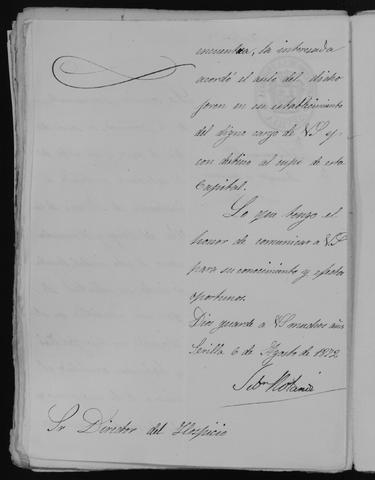 encuentra, la interesada
acordó el asilo del dicho
joven en un establecimiento
del digno cargo de VS y
con destino al mpo de esta
Capital.
Lo que tengo el
honor de comunicar a VS
para su conocimiento y efectos
oportunos.
Dios guarde a VS muchos años
Sevilla 6 de Agosto de 1872
Sr Director del Hospicio